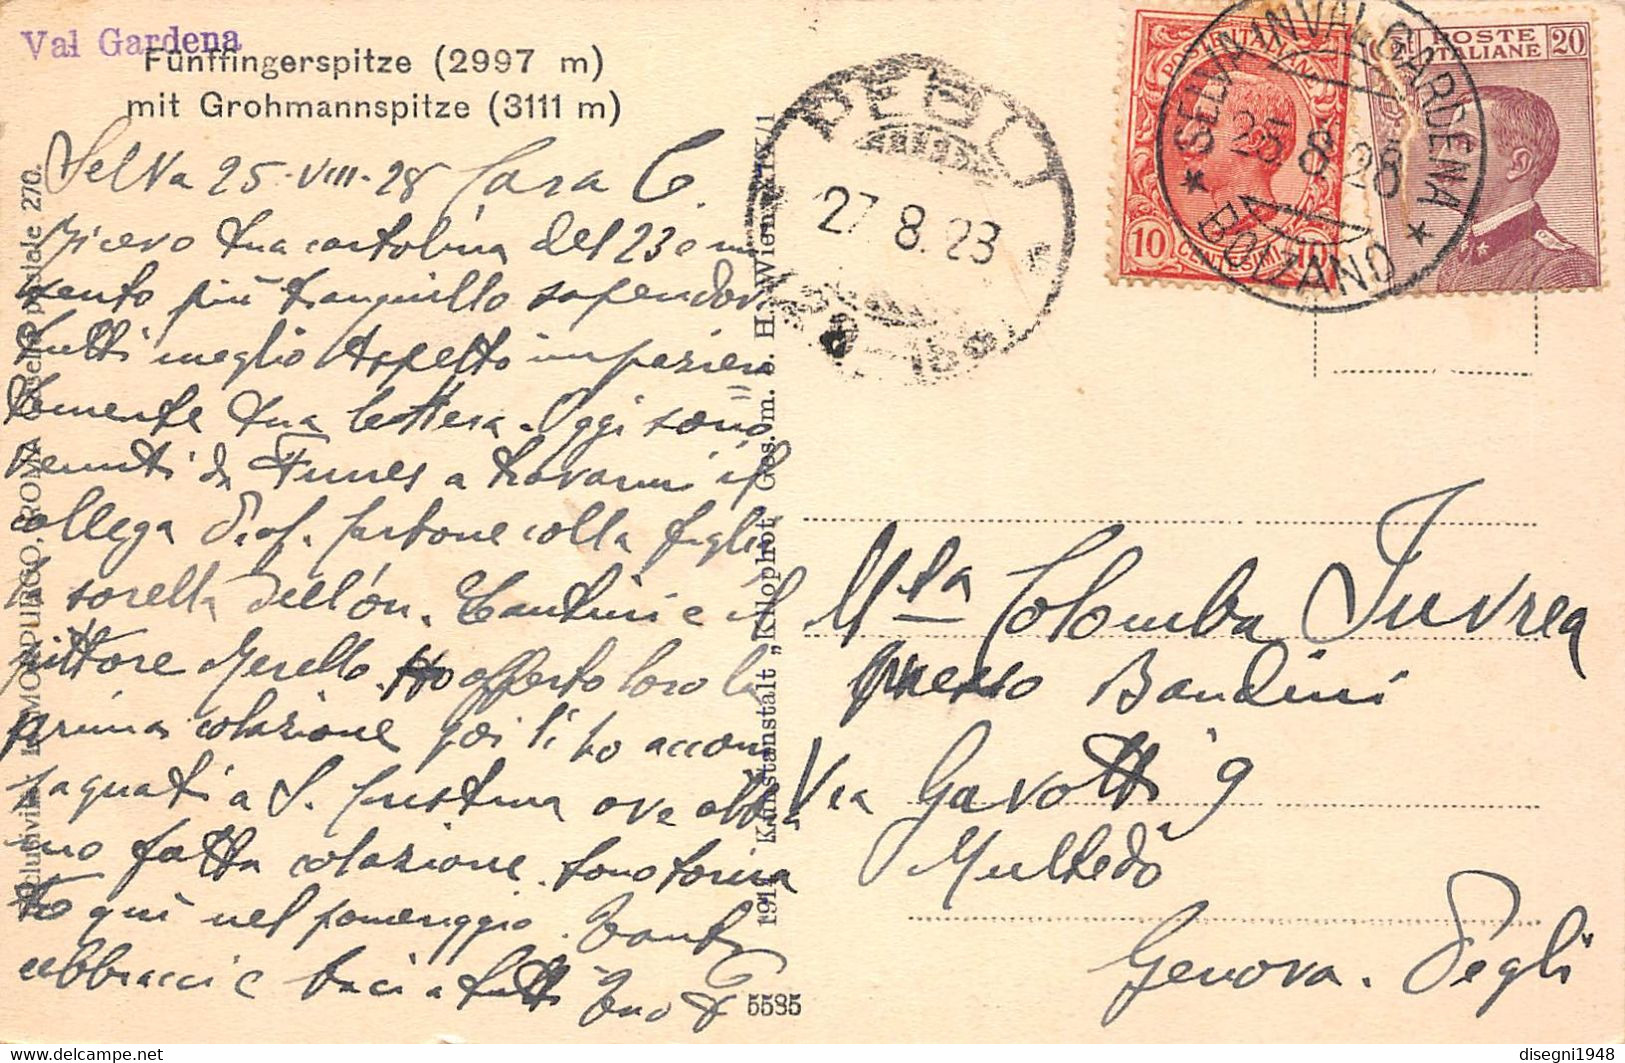 Val Gardena
Fünffingerspitze (2997 m)
mit Grohmannspitze (3111 m)
Selva 25-VIII-28 Cara C.
Ricevo tua cartolina del 23 e mi
sento più tranquillo sapendovi
tutti meglio Aspetto impazien
temente tua lettera. Oggi sono
venuti da Funes a trovarmi il
collega Prof. colla figlia
sorella dell'on. e il
pittore Merello. Ho offerto loro la
prima colazione poi li ho accom
pagnati a S. Cristina ove abbia
mo fatta colazione. Sono torna
to qui nel pomeriggio. Tanti
abbracci e baci a tutti Tuo
5585
1911 Kunstanstalt „Kilophot" Ges. m. b. H., Wien IX/1
MORPURGO, ROMA Casella postale 270.
PEGLI
27.8.23
POSTE ITALIANE
10 CENTESIMI 10
POSTE ITALIANE 20
SELVA IN VAL GARDENA
25.8.28
BOLZANO
M.sa Colomba Invrea
presso Bandini
Via Gavotti 9
Multedo
Genova. Pegli
disegni1948